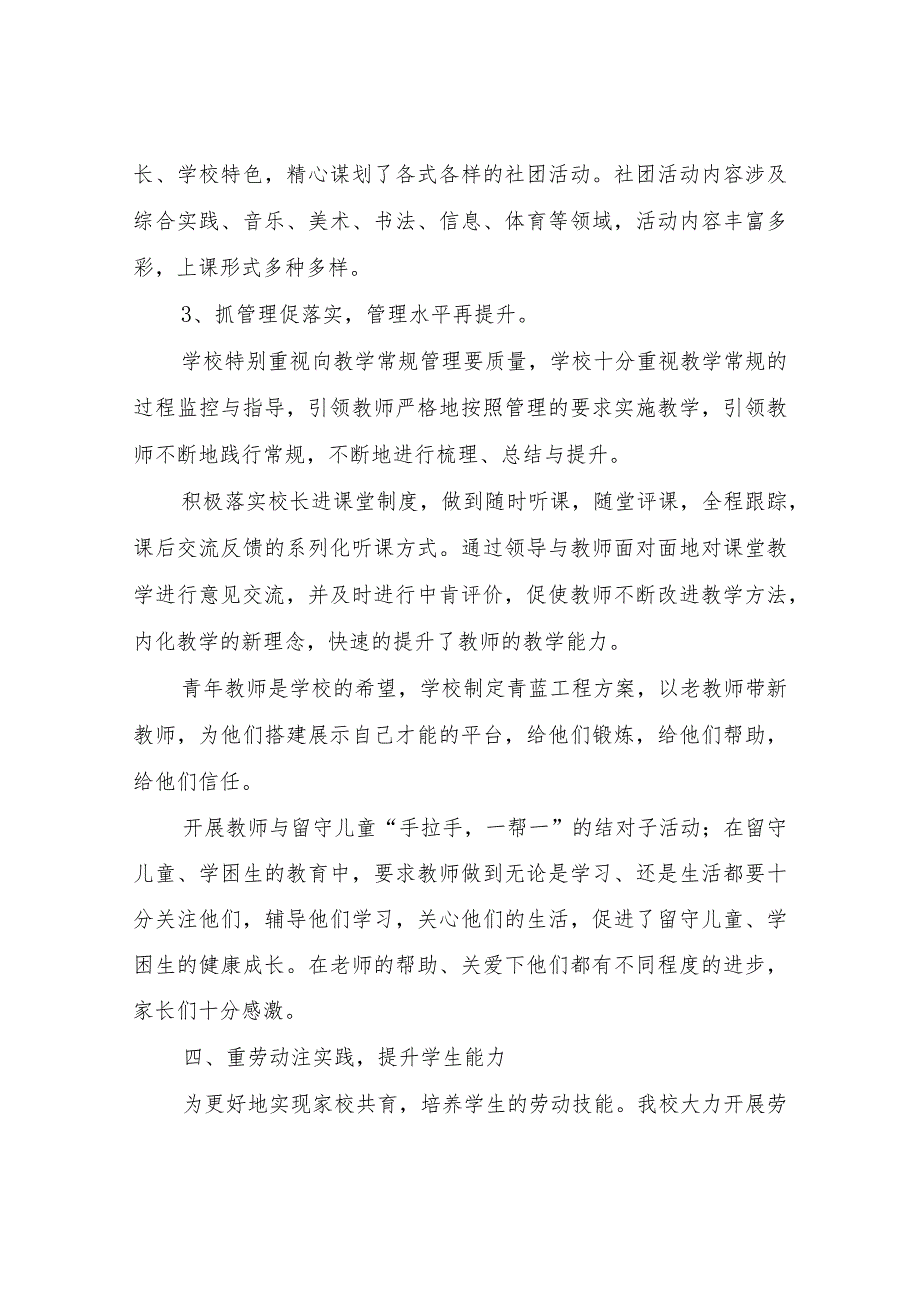 长、学校特色，精心谋划了各式各样的社团活动。社团活动内容涉及
综合实践、音乐、美术、书法、信息、体育等领域，活动内容丰富多
彩，上课形式多种多样。
3、抓管理促落实，管理水平再提升。
学校特别重视向教学常规管理要质量，学校十分重视教学常规的
过程监控与指导，引领教师严格地按照管理的要求实施教学，引领教
师不断地践行常规，不断地进行梳理、总结与提升。
积极落实校长进课堂制度，做到随时听课，随堂评课，全程跟踪，
课后交流反馈的系列化听课方式。通过领导与教师面对面地对课堂教
学进行意见交流，并及时进行中肯评价，促使教师不断改进教学方法，
内化教学的新理念，快速的提升了教师的教学能力。
青年教师是学校的希望，学校制定青蓝工程方案，以老教师带新
教师，为他们搭建展示自己才能的平台，给他们锻炼，给他们帮助，
给他们信任。
开展教师与留守儿童“手拉手，一帮一”的结对子活动；在留守
儿童、学困生的教育中，要求教师做到无论是学习、还是生活都要十
分关注他们，辅导他们学习，关心他们的生活，促进了留守儿童、学
困生的健康成长。在老师的帮助、关爱下他们都有不同程度的进步，
家长们十分感激。
四、重劳动注实践，提升学生能力
为更好地实现家校共育，培养学生的劳动技能。我校大力开展劳